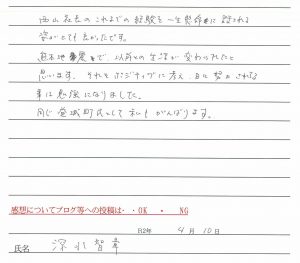 西山社長のこれまでの経験を一生懸命に話される
姿がとても良かったです。
熊本地震で、以前との生活が変わられたと
思います。それをポジティブに考え、日々努力される
事は勉強になりました。
同じ益城町民として私もがんばります。
感想についてブログ等への投稿は・・OK ・ NG
R2年 4月 10日
氏名 深水智幸